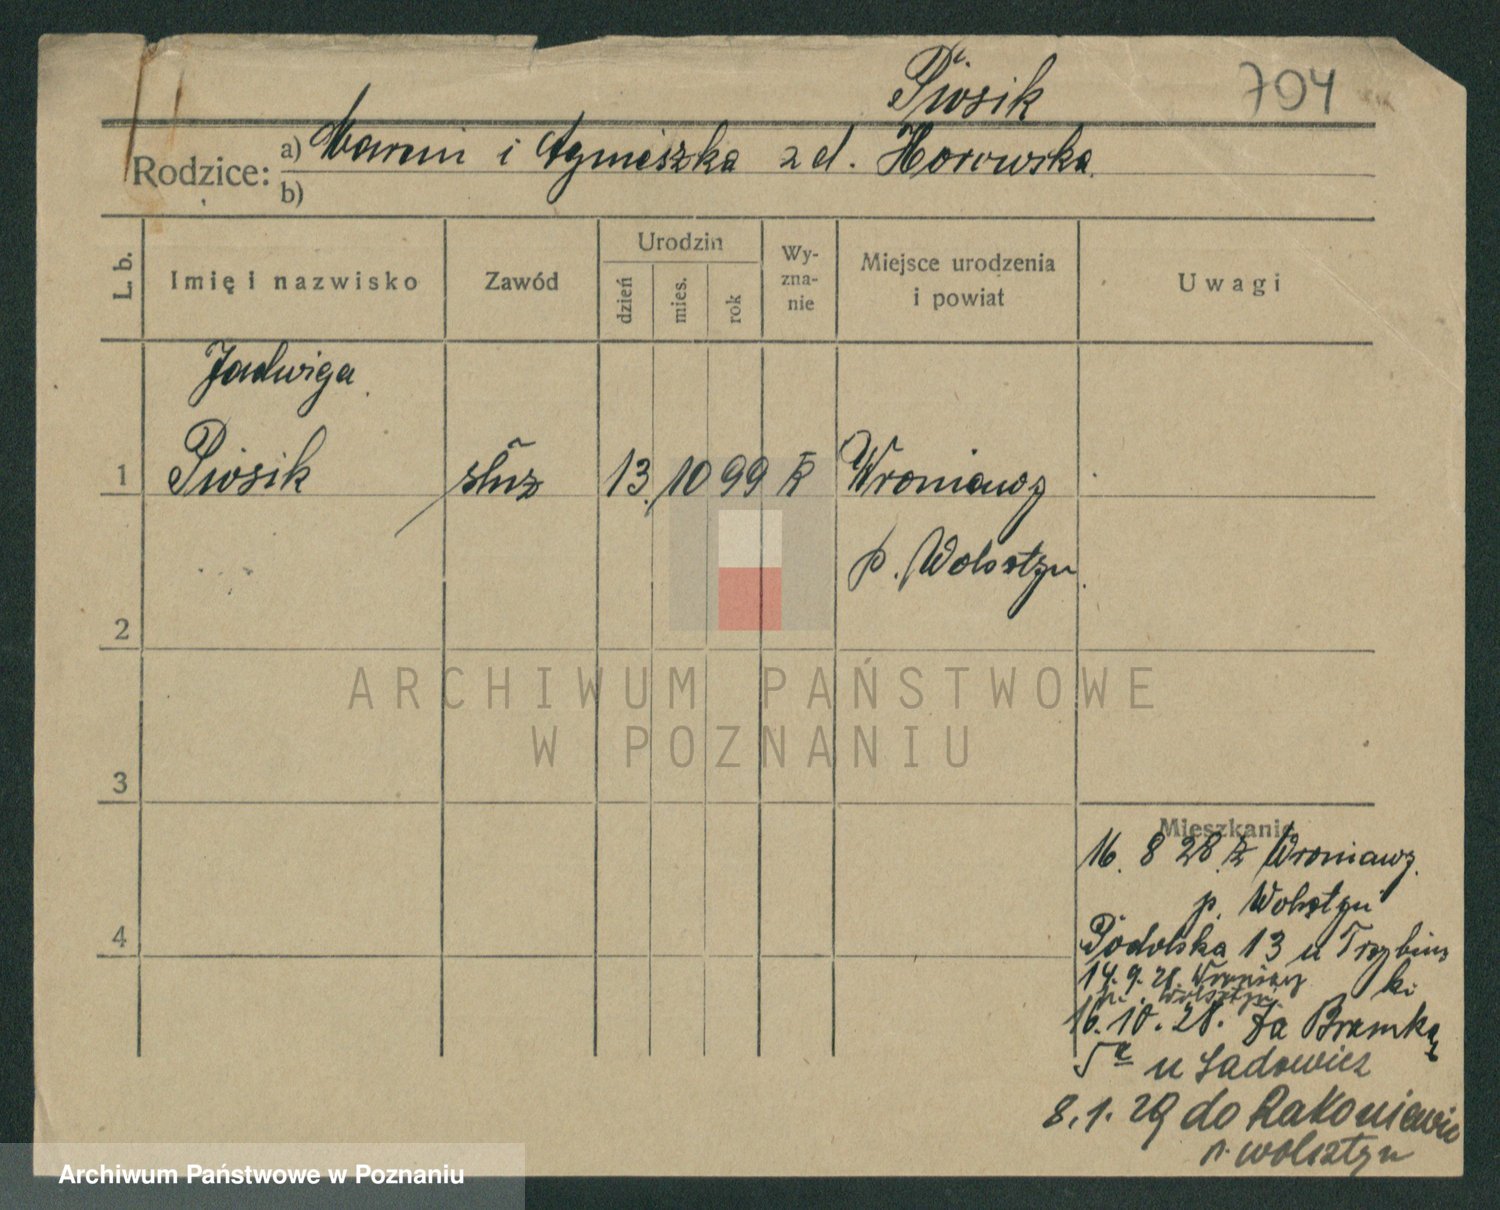 Piosik 704
Rodzice: a) Marcin i Agnieszka z d. Horowska
b)
L. b. Imię i nazwisko Zawód Urodzin dzień mies. rok Wy-zna-nie Miejsce urodzenia i powiat Uwagi
Jadwiga
1 Piosik służ 13. 10 99 K Wroniawy
p. Wolsztyn.
2
ARCHIWUM PAŃSTWOWE
W POZNANIU
3
Mieszkanie
16. 8 28. z Wroniawy.
p. Wolsztyn
4
Podolska 13 u Trzybińs
ki
14. 9. 28. Wroniawy
p. Wolsztyn
16. 10. 28. Za Bramką
5a u Sadowicz
8. 1. 29 do Rakoniewic
p. Wolsztyn
Archiwum Państwowe w Poznaniu